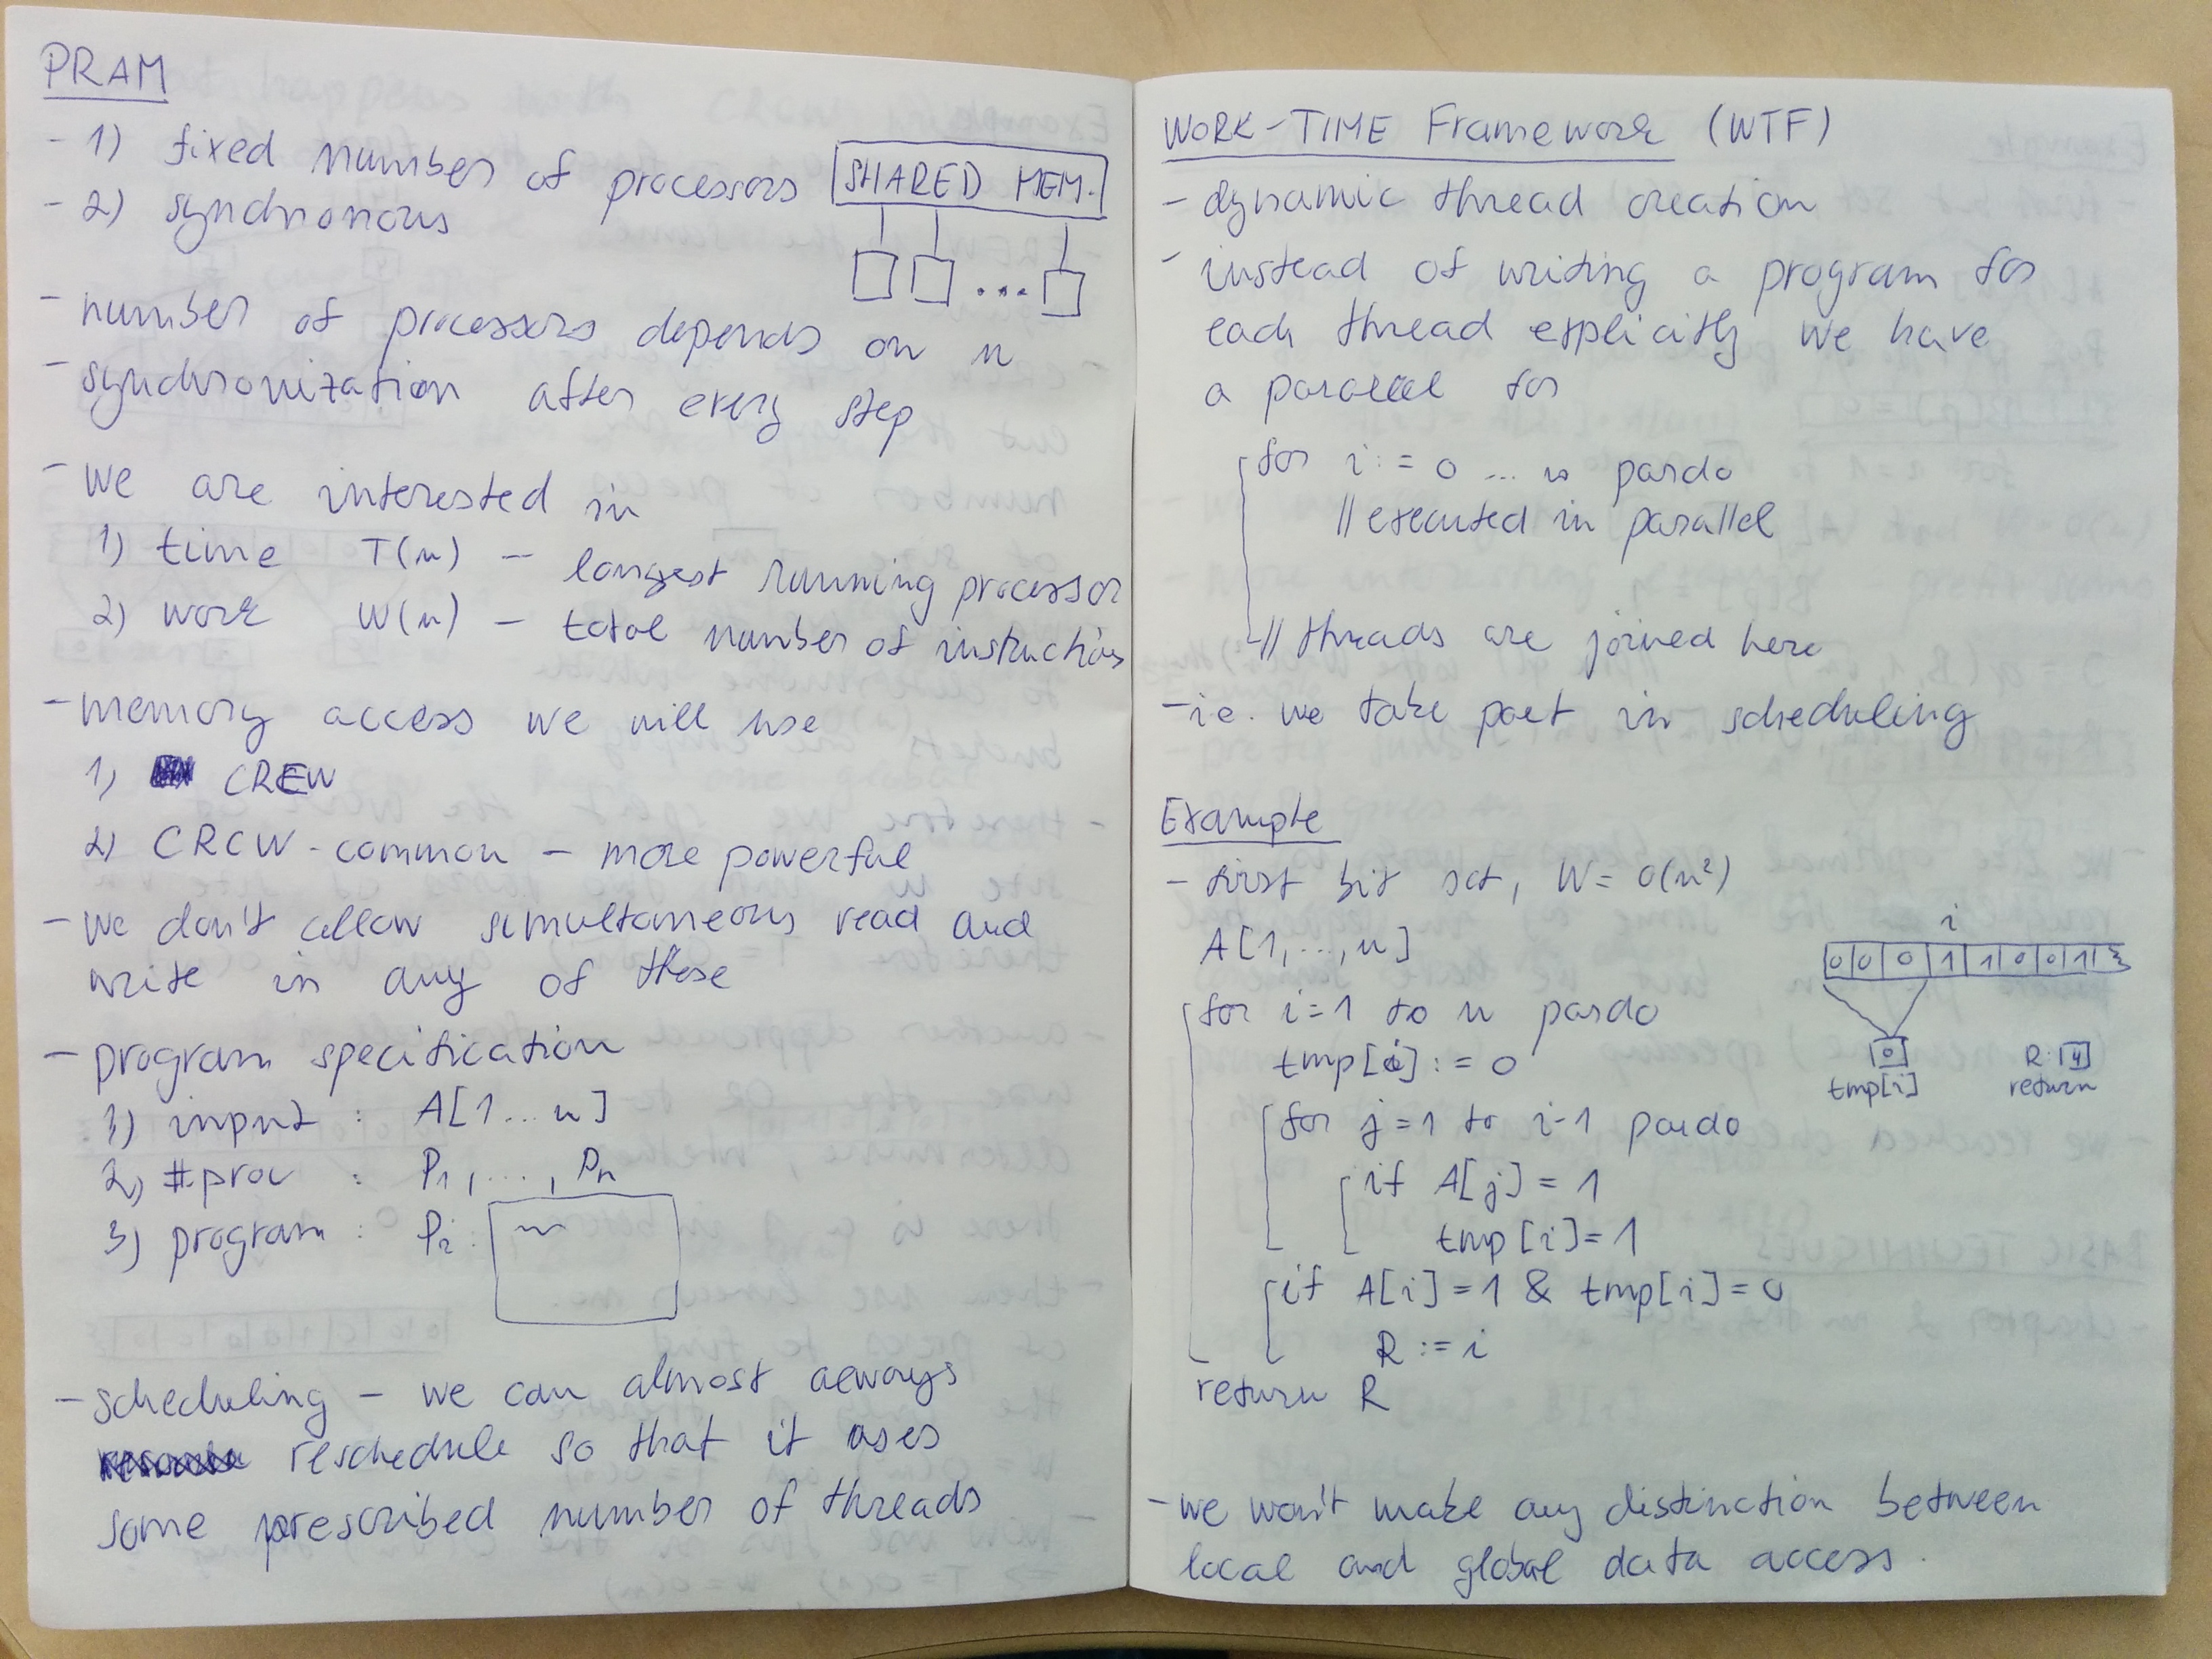 PRAM
- 1) fixed number of processors
- 2) synchronous
SHARED MEM.
...
- number of processors depends on n
- synchronization after every step
- we are interested in
1) time T(n) - longest running processor
2) work W(n) - total number of instructions
- memory access we will use
1) CREW
2) CRCW - common - more powerful
- we don't allow simultaneous read and
write in any of these
- program specification
1) input : A[1...n]
2) #proc : P1, ..., Pn
3) program : Pi :
- scheduling - we can almost always
reschedule so that it uses
some prescribed number of threads
WORK-TIME Framework (WTF)
- dynamic thread creation
- instead of writing a program for
each thread explicitly we have
a parallel for
for i := 0 ... n pardo
// executed in parallel
// threads are joined here
- ie. we take part in scheduling
Example
- first bit set, W = O(n²)
A[1,...,n]
i
0 0 0 1 1 0 0 1
for i=1 to n pardo
tmp[i] := 0
0
R: 4
tmp[i]
return
for j=1 to i-1 pardo
if A[j] = 1
tmp[i]=1
if A[i]=1 & tmp[i]=0
R := i
return R
- we won't make any distinction between
local and global data access.